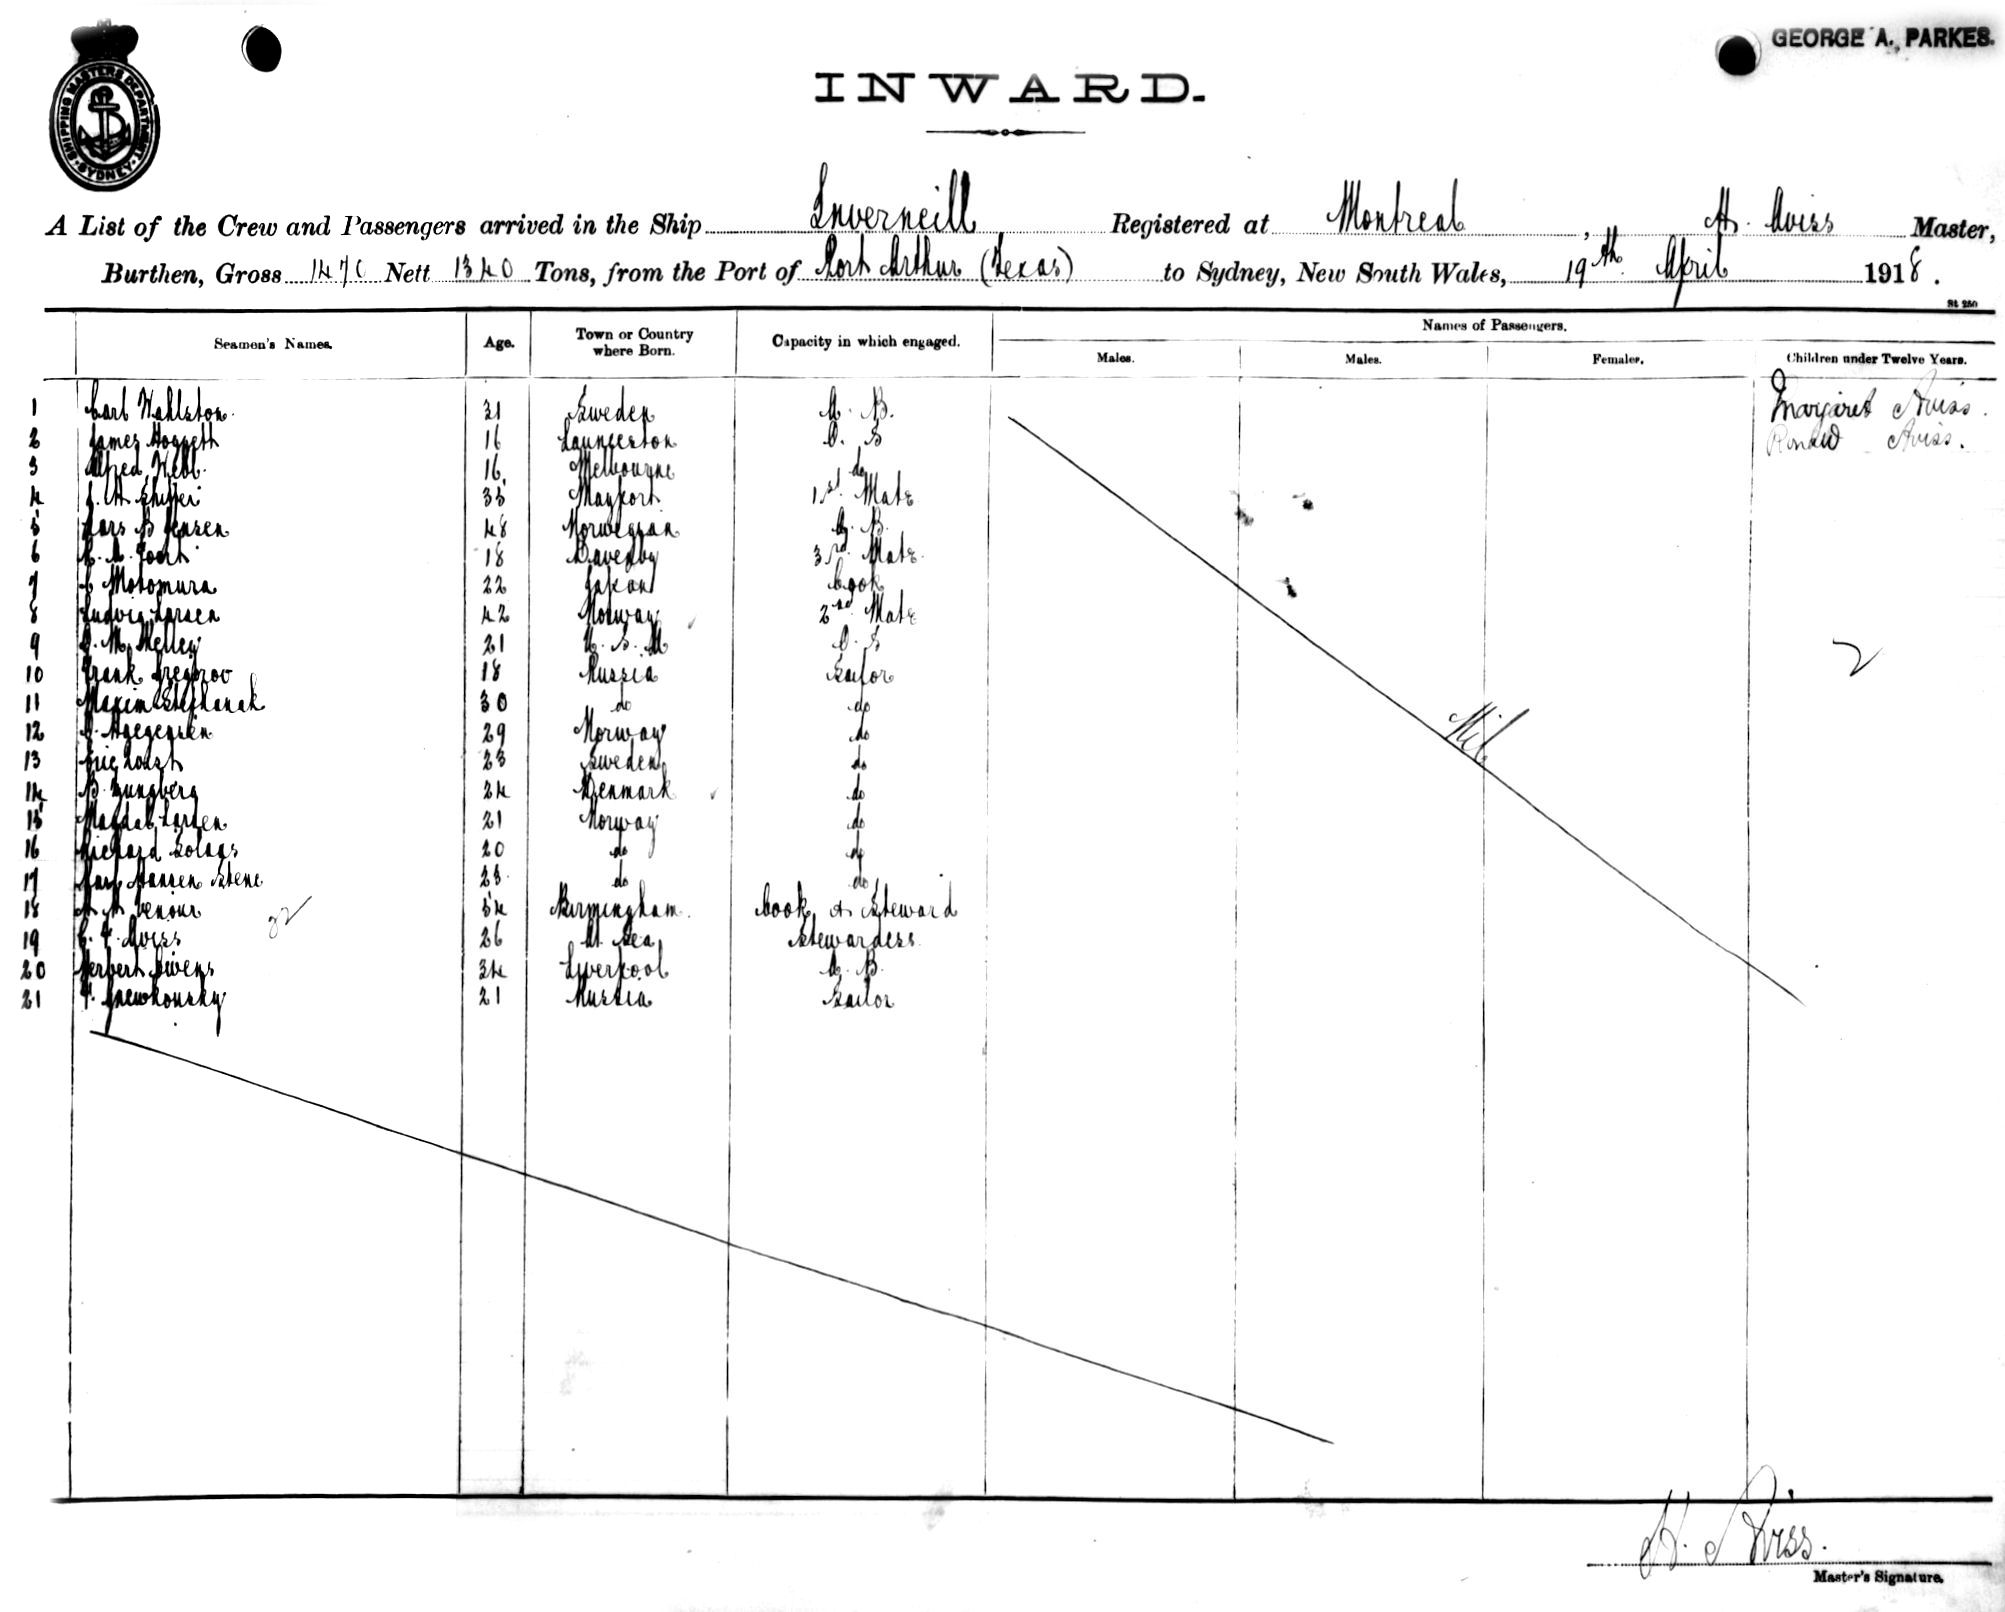 GEORGE A. PARKES.
SHIPPING MASTERS DEPARTMENT SYDNEY
INWARD.
A List of the Crew and Passengers arrived in the Ship Inverneill Registered at Montreal, H. Aviss Master,
Burthen, Gross 1470 Nett 1340 Tons, from the Port of Port Arthur (Texas) to Sydney, New South Wales, 19th April 1918.
St 250
Seamen's Names. Age. Town or Country where Born. Capacity in which engaged. Names of Passengers.
Males. Males. Females. Children under Twelve Years.
1 Carl Wahlston 31 Sweden A. B. Margaret Aviss.
2 James 16 Launceston O. S Ronald Aviss.
3 Alfred Webb. 16 Melbourne do
4 J. H. 35 Mayport 1st Mate
5 Lars B Jensen 48 Norwegian A. B.
6 18 3rd Mate
7 Motomura 22 Japan Cook
8 Ludvig Larsen 42 Norway 2nd Mate
9 M. 21 U. S. A O. S
2
10 Frank Gregorov 18 Russia Sailor
11 Maxim Stephanak 30 do do
12 29 Norway do
Nil
13 Eric 23 Sweden do
14 B. Ljungberg 24 Denmark do
15 Larsen 21 Norway do
16 Richard Solaas 20 do do
17 Karl Hansen Stene 23 do do
18 H. A Venour 54 Birmingham Cook & Steward
22
19 Aviss 26 At Sea Stewardess
20 Herbert Owens 34 Liverpool A. B.
21 21 Russia Sailor
H. Aviss.
Master's Signature.